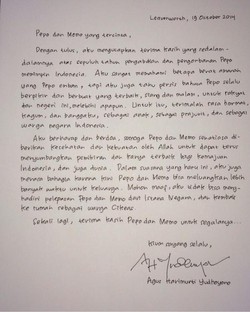 Leavenworth, 13 Oktober 2014
Pepo dan Memo yang tercinta,
Dengan tulus, aku mengucapkan terima kasih yang sedalam-
dalamnya atas sepuluh tahun pengabdian dan pengorbanan Pepo
memimpin Indonesia. Aku sangat memahami betapa berat amanah
yang Pepo emban, tapi aku juga tahu persis bahwa Pepo selalu
berpikir dan berbuat yang terbaik, siang dan malam, untuk rakyat
dan negeri ini, melebihi apapun. Untuk itu, terimalah rasa hormat,
kagum, dan banggaku, sebagai anak, sebagai prajurit, dan sebagai
warga negara Indonesia.
Aku berharap dan berdoa, semoga Pepo dan Memo senantiasa di-
berikan kesehatan dan kekuatan oleh Allah untuk dapat terus
menyumbangkan pemikiran dan karya terbaik bagi kemajuan
Indonesia, dan juga dunia. Dalam suasana yang haru ini, aku juga
merasa bahagia karena kini Pepo dan Memo bisa meluangkan lebih
banyak waktu untuk keluarga. Mohon maaf, aku tidak bisa meng-
hadiri pelepasan Pepo dan Memo dari Istana Negara, dan kembali
ke rumah sebagai warga Cikeas.
Sekali lagi, terima kasih Pepo dan Memo untuk segalanya...
Kium sayang selalu,
Agus Harimurti Yudhoyono